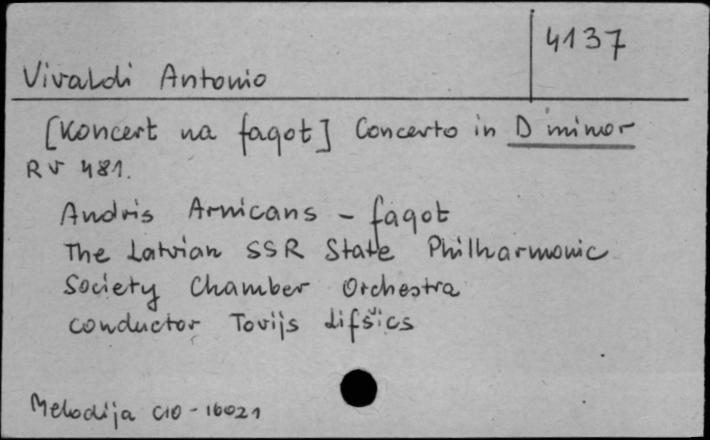 4137
Vivaldi Antonio
[Koncert na fagot] Concerto in D minor
RV 481.
Andris Arnicans - fagot
The Latvian SSR State Philharmonic
Society Chamber Orchestra
conductor Tovijs Lifšics
Melodija C10-16021